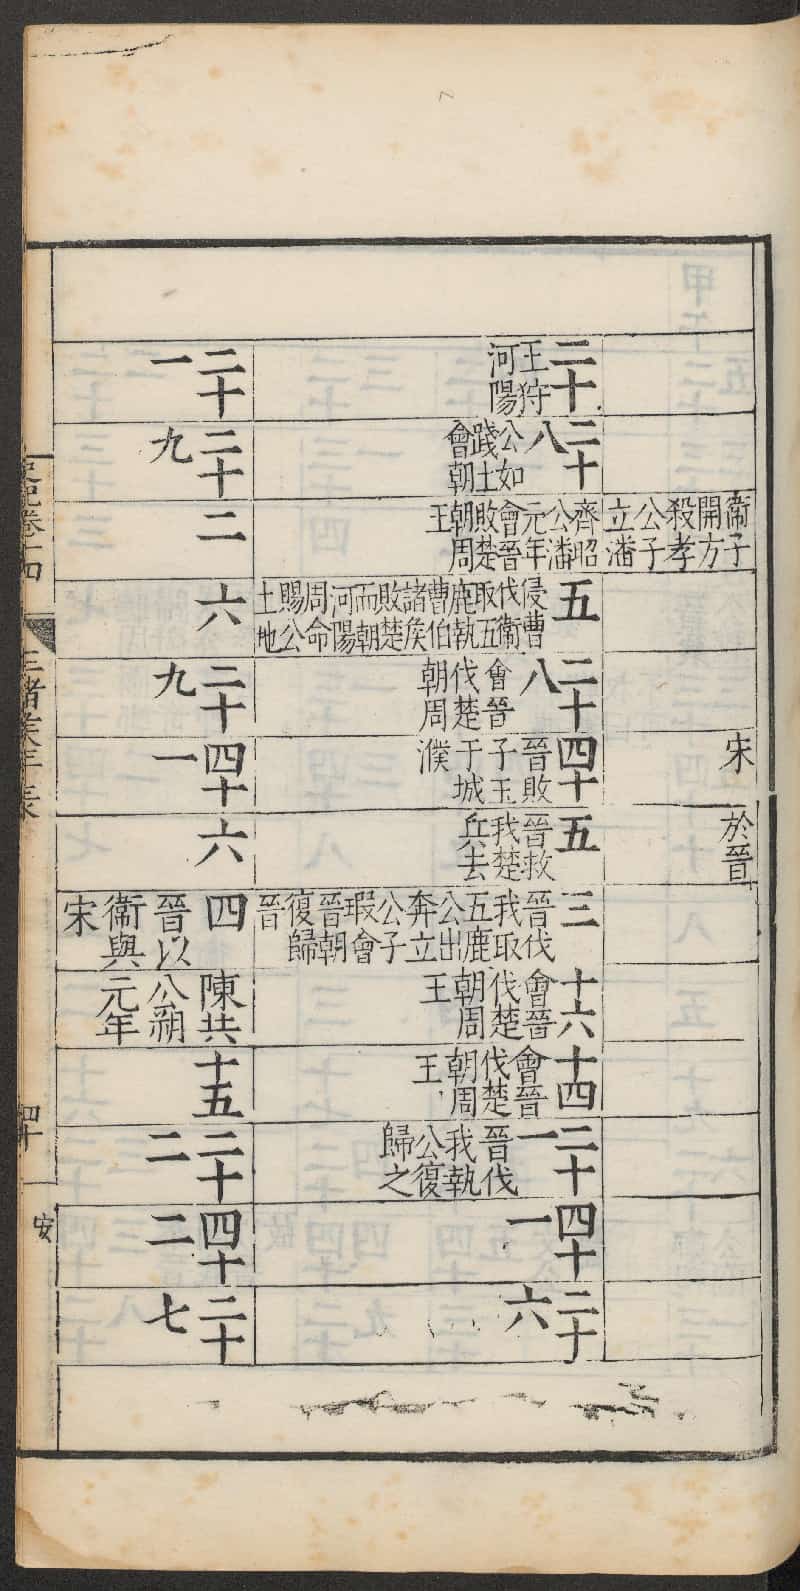 衞子開方殺孝公子立潘
宋
於晉
二十王狩河陽
二十八公如踐土會朝
齊昭公潘元年會晉敗楚朝周王
五侵曹伐衞取五鹿執曹伯諸侯敗楚而朝河陽周命賜公土地
二十八會晉伐楚朝周
四十晉敗子玉于城濮
五晉救我楚兵去
三晉伐我取五鹿公出奔立公子瑕會晉朝復歸晉
十六會晉伐楚朝周王
十四會晉伐楚朝周王
二十一晉伐我執公復歸之
四十一
二十六
二十一
二十九
二
六
二十九
四十一
六
四晉以衞與宋
陳共公朔元年
十五
二十二
四十二
二十七
史記卷十四
諸侯年表
四十
安